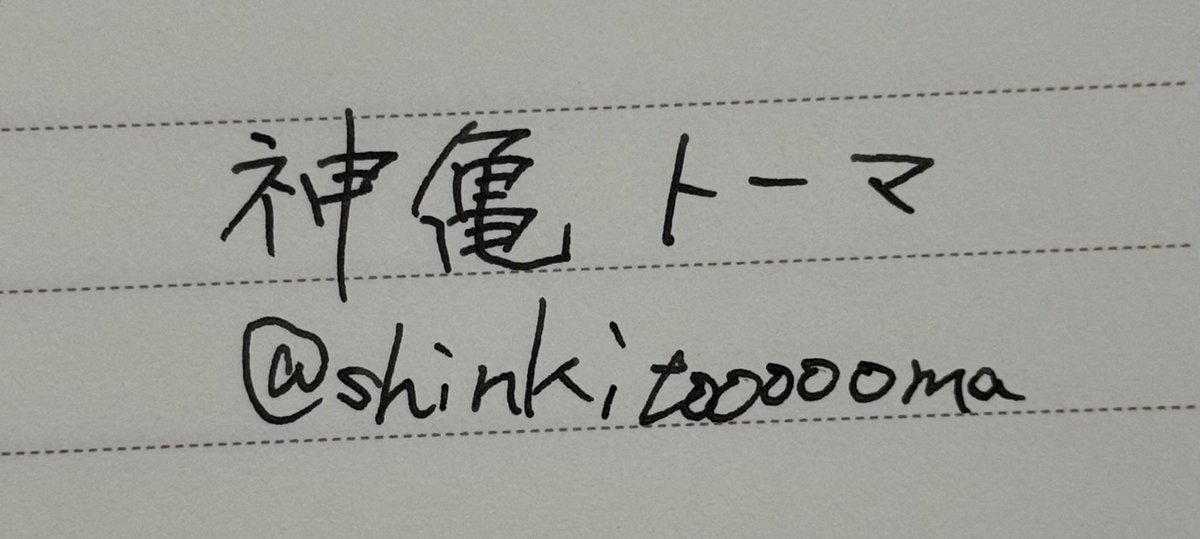 神亀 トーマ
@shinkitoooooma